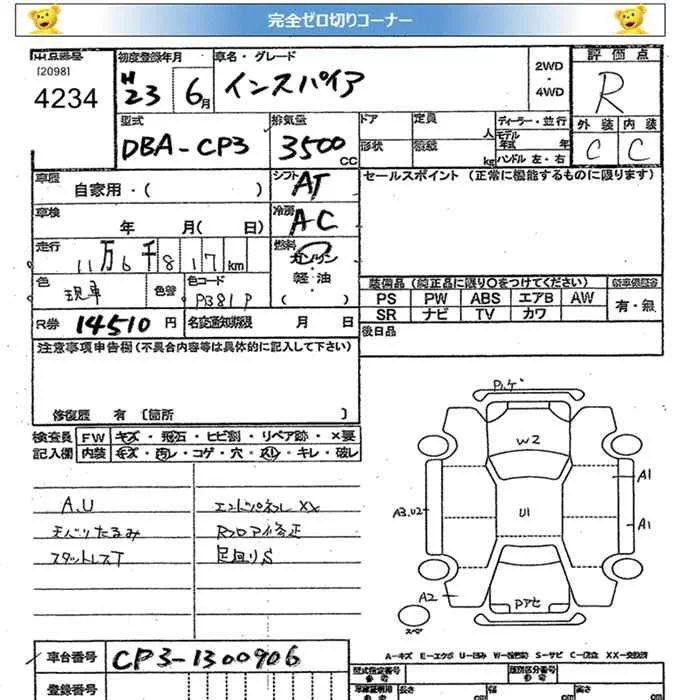 完全ゼロ切りコーナー
出品番号 初度登録年月 車名・グレード 2WD・4WD 評価点
[2098]
4234 H23 6月 インスパイア R
型式 排気量 ドア 定員 人 ディーラー・並行 外装 内装
DBA-CP3 3500CC 形状 積載 kg モデル年式 年 ハンドル 左・右 C C
車歴 自家用・( ) シフト AT セールスポイント (正常に機能するものに限ります)
車検 年 月( 日) 冷房 AC
走行 11万6千817km 燃料 ガソリン・軽油・( )
色 現車 色替 色コード PB81P
装備品(純正品に限り○をつけてください)
PS PW ABS エアB AW 有・無
SR ナビ TV カワ
R券 14510円 月 日 後日品
注意事項申告欄(不具合内容等は具体的に記入して下さい)
修復歴 有 [箇所 ]
検査員 FW キズ・飛石・ヒビ割・リペア跡・×要
記入欄 内装 キズ・汚レ・コゲ・穴・スレ・キレ・破レ
A.U エンドパネルXX
天ベリたるみ Rフロア修正
スタットレスT 足回りS
W2
A1
A3.U2 U1 A1
A2
スペア
A-キズ E-エクボ U-凹み S-サビ
車台番号 CP3-1300906
登録番号
型式指定番号 類別区分番号
長さ cm 幅 cm 高さ cm